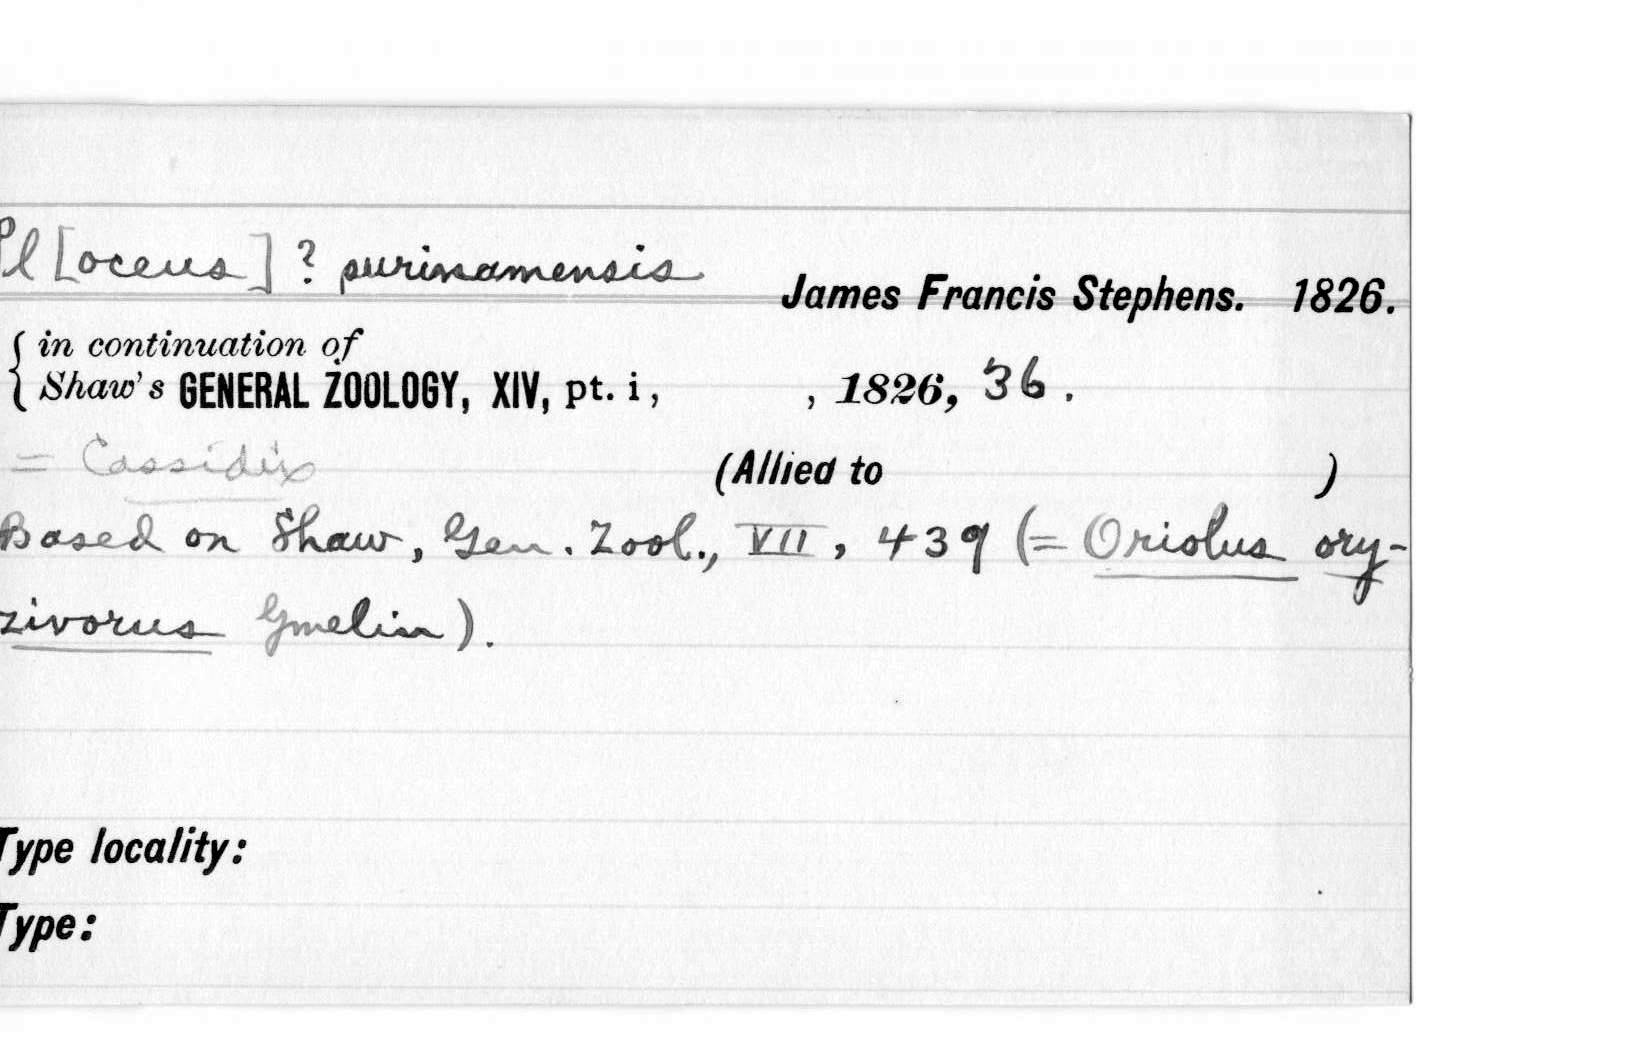 Pl[oceus] ? surinamensis James Francis Stephens. 1826.
{ in continuation of
Shaw's GENERAL ZOOLOGY, XIV, pt. i, , 1826, 36.
= Cassidix (Allied to )
Based on Shaw, Gen. Zool., VII, 439 (= Oriolus ory-
zivorus Gmelin).
Type locality:
Type: